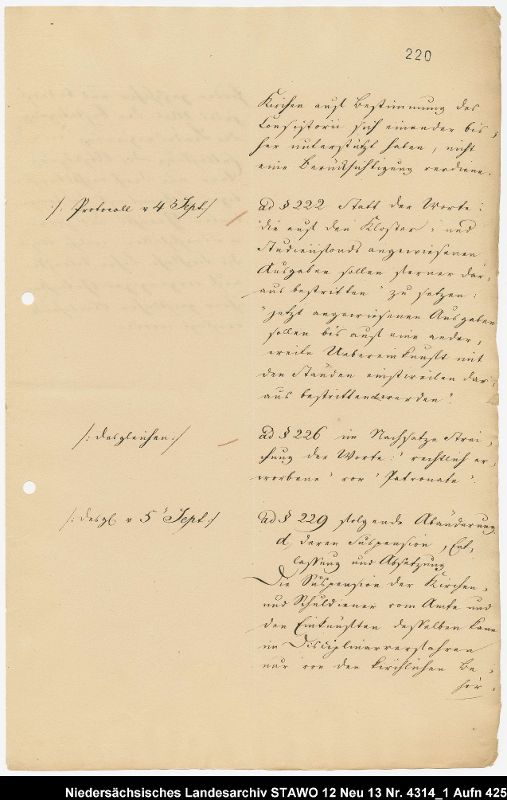 220
Kirchen auf Bestimmung des
Consistorii sich einander bis,
her unterstützt haben, nicht
eine Berücksichtigung verdiene.
/: Protocoll v 4t Sept :/
ad § 222 Statt der Worte:
"die auf den Kloster- und
Studienfonds angewiesenen
Ausgaben sollen ferner dar,
aus bestritten" zu setzen:
"jetzt angewiesenen Ausgaben
sollen bis auf eine ander,
weite Uebereinkunft mit
den Ständen einstweilen dar,
aus bestritten werden".
/: desgleichen :/
ad § 226 im Nachsatze Strei,
chung der Worte: "rechtlich er,
worbene" vor "Patronate".
/: desgl v 5t Sept :/
ad § 229 folgende Abänderung
d, deren Suspension, Ent,
lassung und Absetzung
Die Suspension der Kirchen,
und Schuldiener vom Amte und
den Einkünften desselben kann
im Disciplinarverfahren
nur von den kirchlichen Be,
hör,
Niedersächsisches Landesarchiv STAWO 12 Neu 13 Nr. 4314_1 Aufn 425